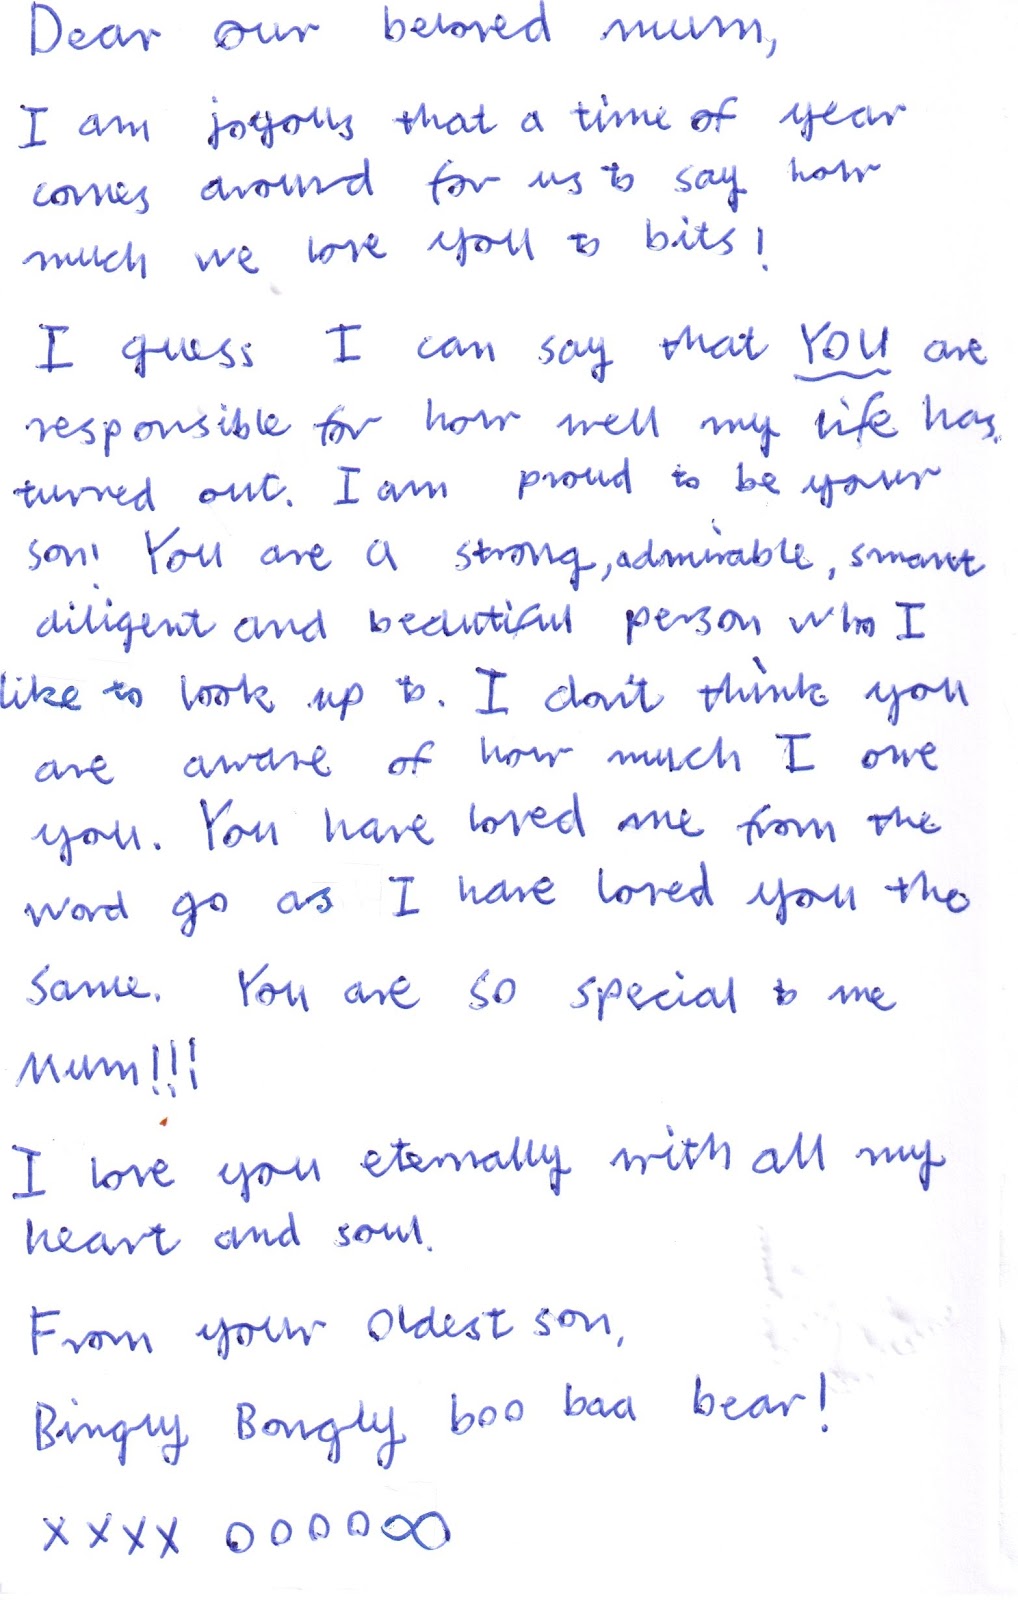 Dear our beloved mum,
I am joyous that a time of year
comes around for us to say how
much we love you to bits!
I guess I can say that YOU are
responsible for how well my life has
turned out. I am proud to be your
son! You are a strong, admirable, smart
diligent and beautiful person who I
like to look up to. I don't think you
are aware of how much I owe
you. You have loved me from the
word go as I have loved you the
same. You are so special to me
Mum!!!
I love you eternally with all my
heart and soul.
From your oldest son,
Bingly Bongly boo baa bear!
x x x x o o o o ∞